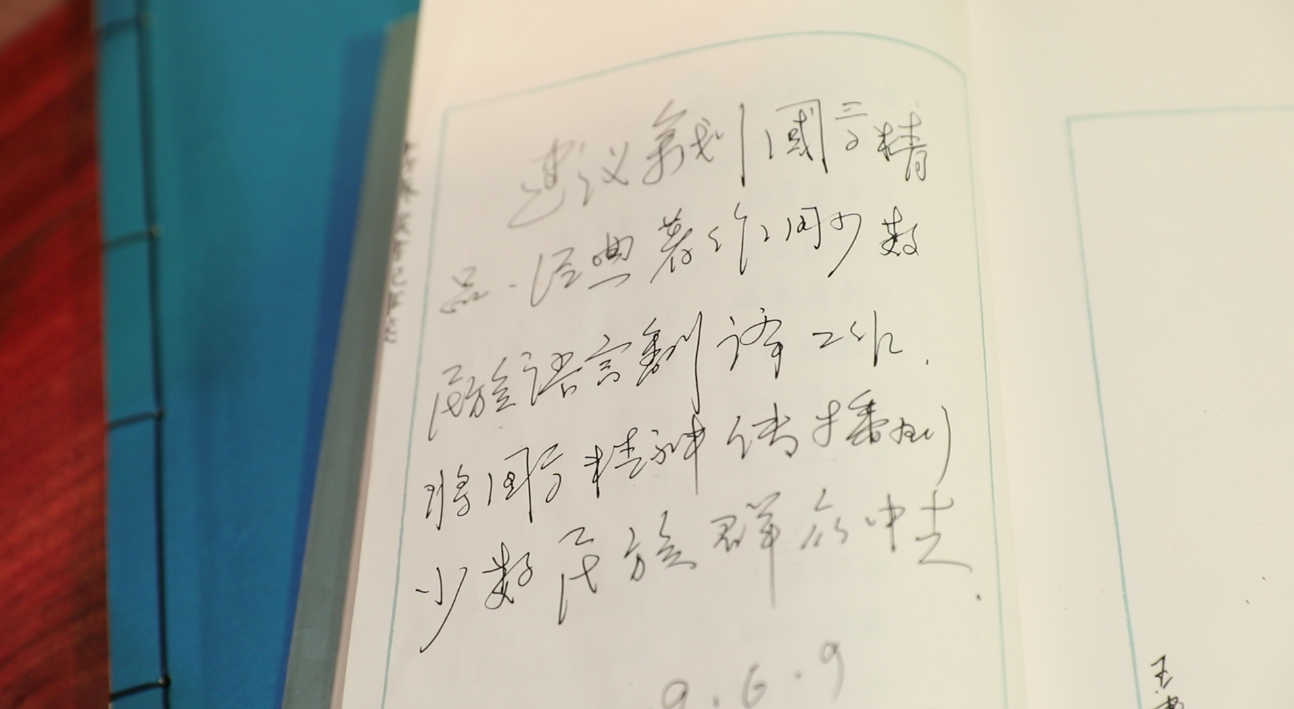 建议筹划國学精
品·经典著作用少数
民族语言翻译工作,
将国学精神传播到
少数民族群众中去.
9.6.9
王